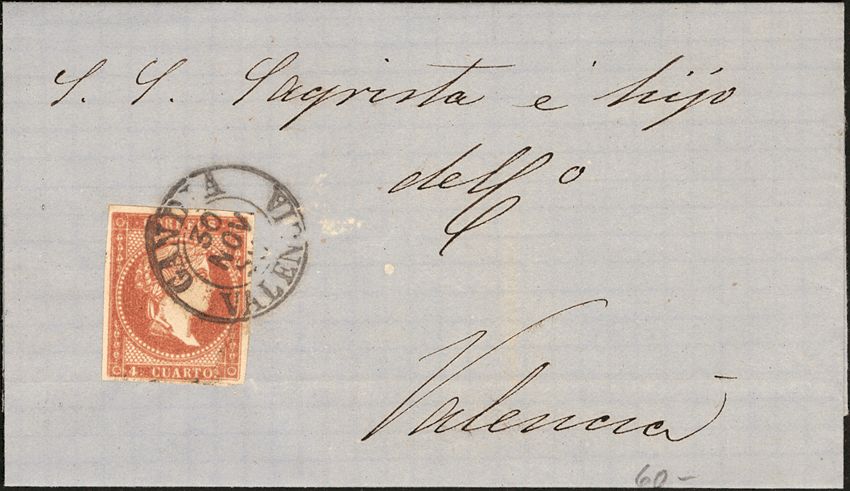 S. S. Sagrista é hijo
del C.º
Valencia
GANDIA
VALENCIA
30
NOV
4 CUARTOS
60-